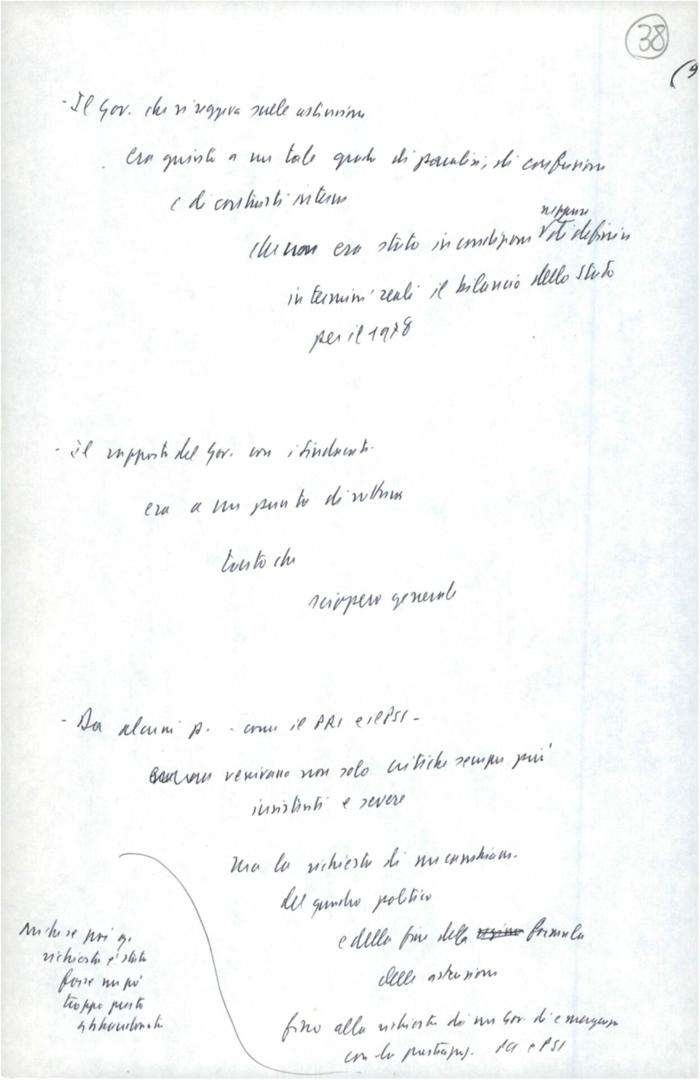 38
(9
- Il Gov. che si reggeva sulle astensioni
era giunto a un tale grado di paralisi, di confusione
e di contrasti interni
neppure
che non era stato in condizioni di definire
in termini reali il bilancio dello Stato
per il 1978
- Il rapporto del Gov. con i sindacati
era a un punto di rottura
tanto che
sciopero generale
- Da alcuni p. - come il PRI e il PSI -
venivano non solo critiche sempre più
insistenti e severe
ma la richiesta di un cambiam.
del quadro politico
e della fine della formula
delle astensioni
fino alla richiesta di un Gov. di emergenza
con la partecip. PCI e PSI
anche se poi q.
richiesta è stata
forse un po'
troppo presto
abbandonata